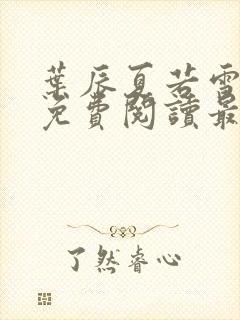 葉辰夏若雪
免費閱讀最
了然睿心